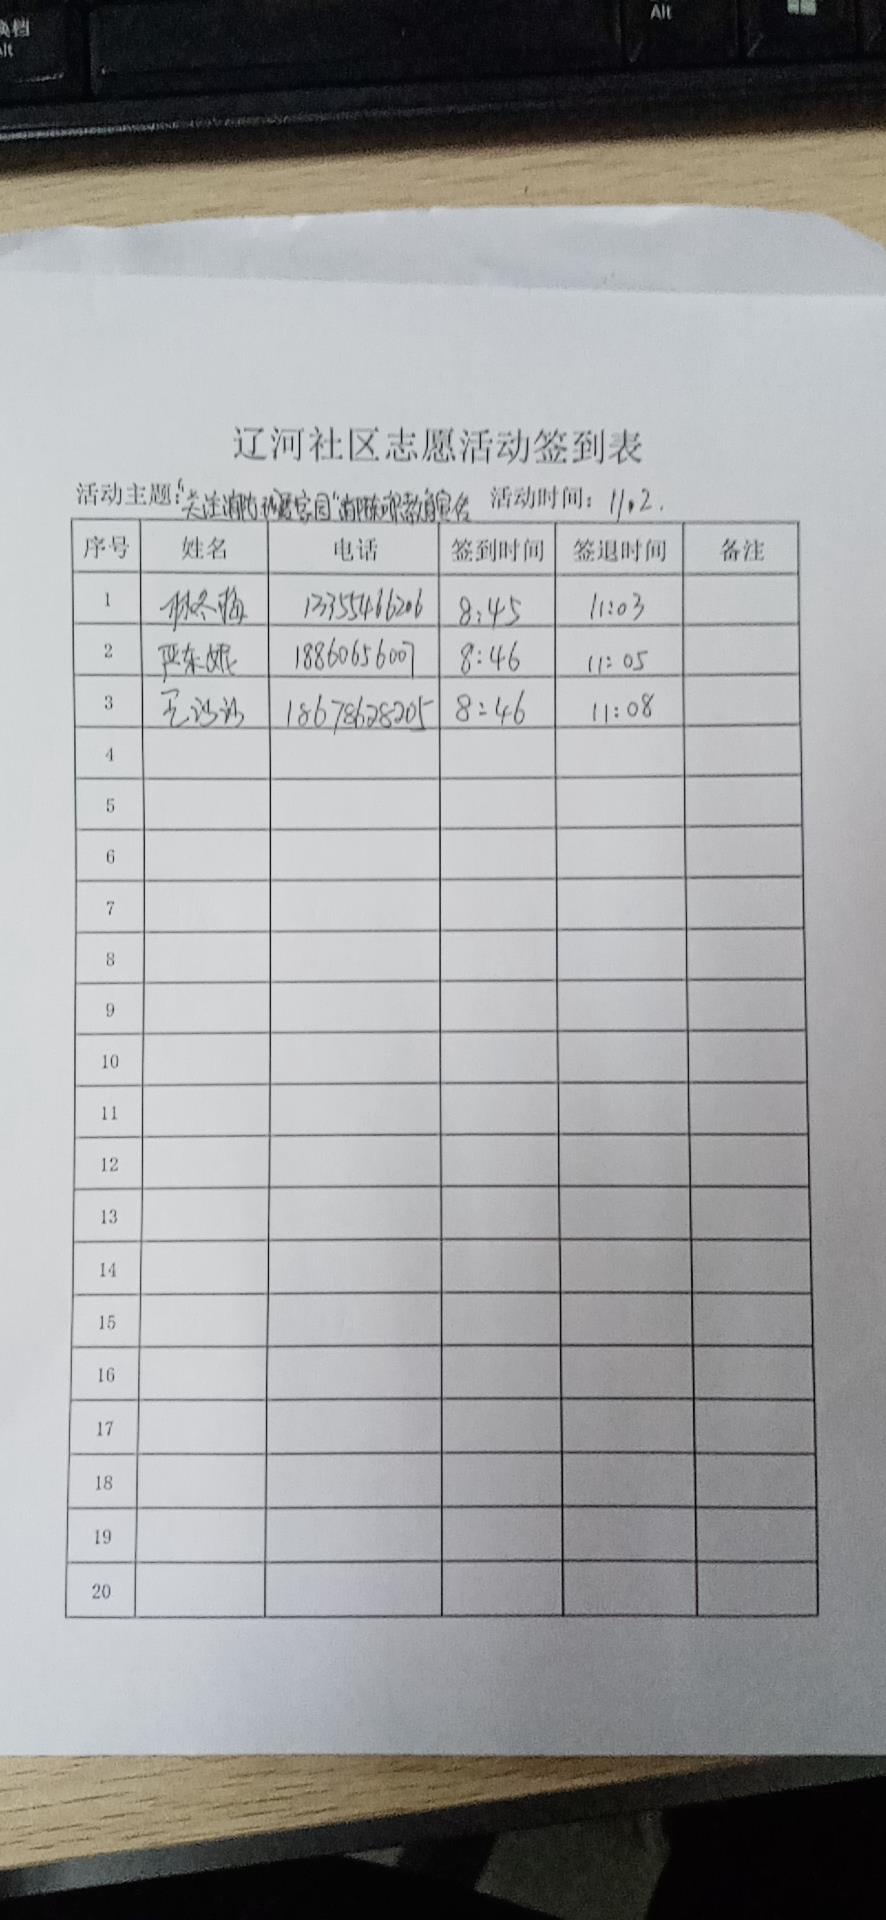 换档
Alt
Alt
辽河社区志愿活动签到表
活动主题:"关注消防 家园" 教育宣传 活动时间: 11.2.
序号 姓名 电话 签到时间 签退时间 备注
1 林冬梅 13355466206 8:45 11:03
2 严东妮 18860656007 8:46 11:05
3 18678628205 8:46 11:08
4
5
6
7
8
9
10
11
12
13
14
15
16
17
18
19
20